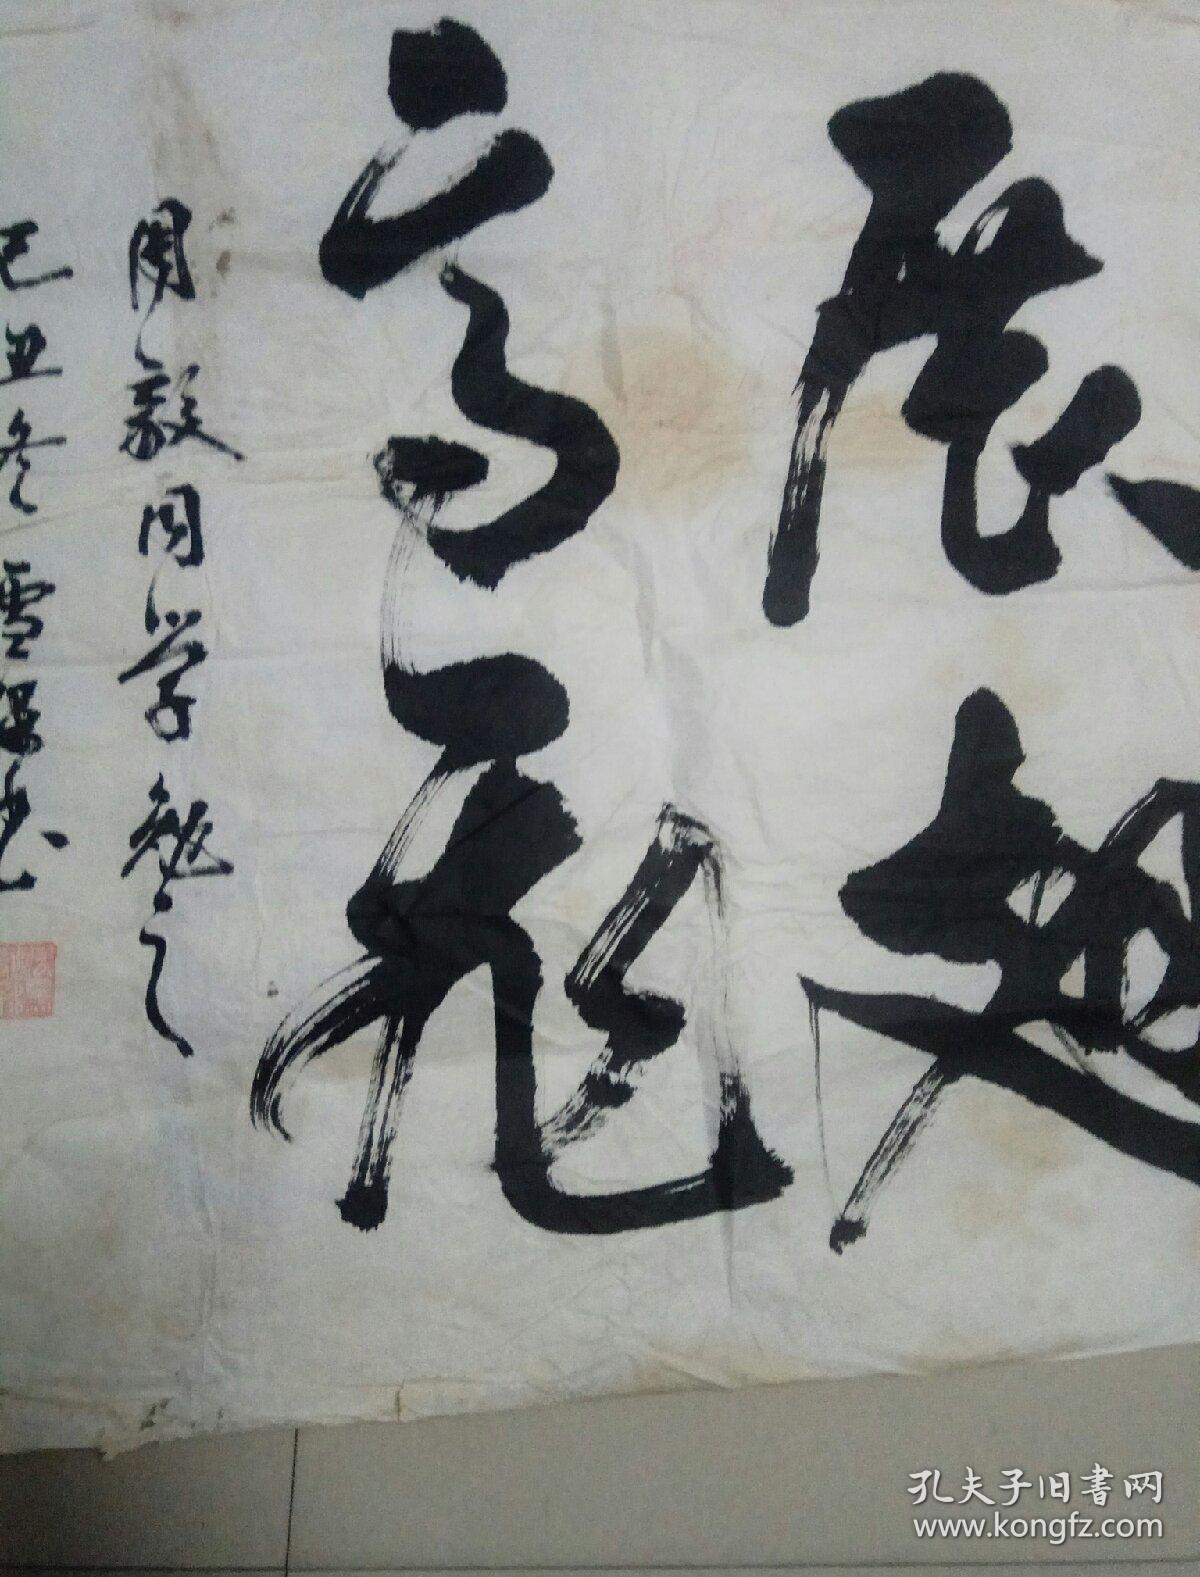 展翅
高飛
周毅同学勉之
己丑冬雪梅书
孔夫子旧書网
www.kongfz.com